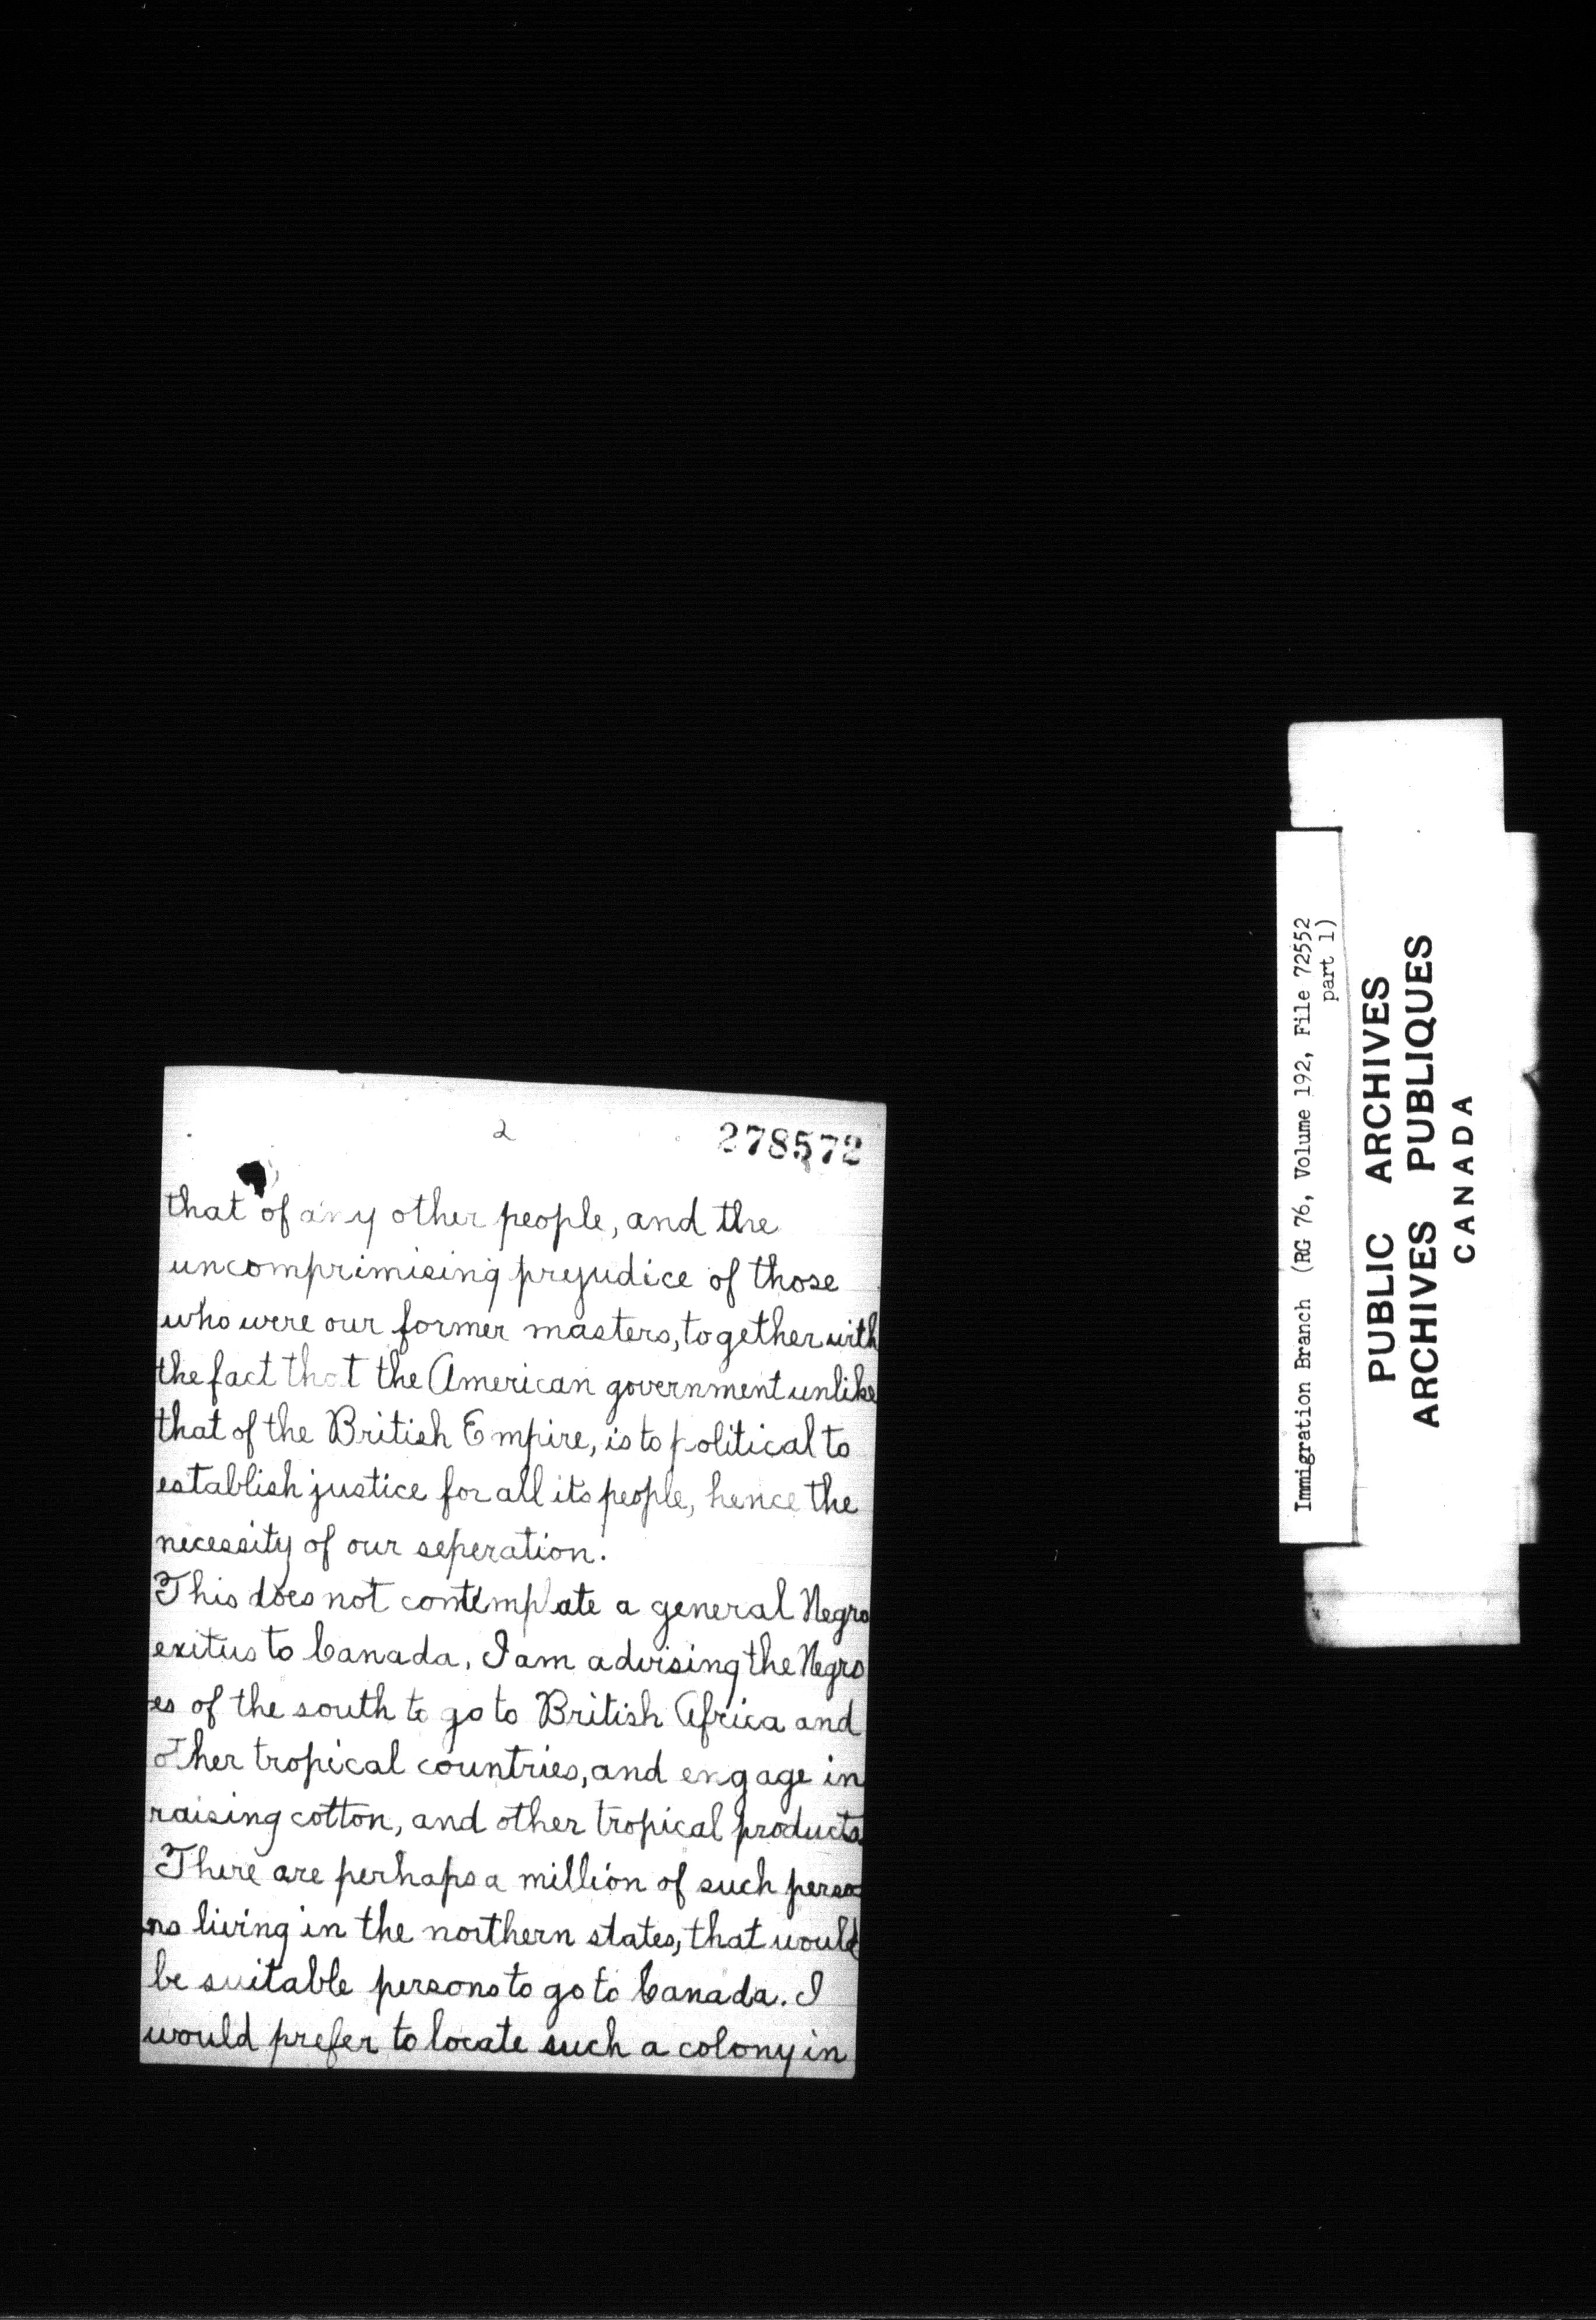 2
278572
that of any other people, and the
uncomprimising prejudice of those
who were our former masters, together with
the fact that the American government unlike
that of the British Empire, is to political to
establish justice for all its people, hence the
necessity of our seperation.
This does not contemplate a general Negro
exitus to Canada. I am advising the Negro
es of the south to go to British Africa and
other tropical countries, and engage in
raising cotton, and other tropical products
There are perhaps a million of such perso
ns living in the northern states, that would
be suitable persons to go to Canada. I
would prefer to locate such a colony in
Immigration Branch (RG 76, Volume 192, File 72552
part 1)
PUBLIC ARCHIVES
ARCHIVES PUBLIQUES
CANADA